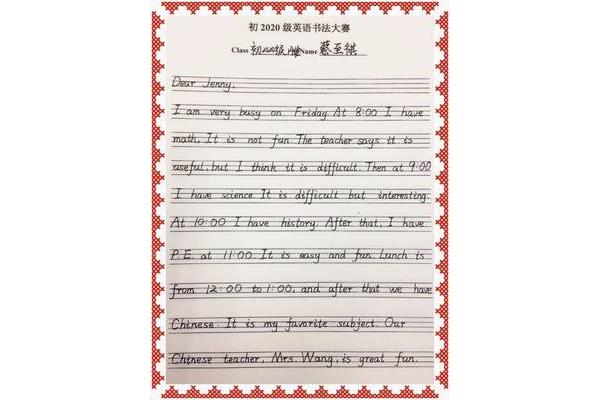 初 2020 级英语书法大赛
Class 初2020级 Name 蔡至祺
Dear Jenny,
I am very busy on Friday. At 8:00 I have
math. It is not fun. The teacher says it is
useful, but I think it is difficult. Then at 9:00
I have science. It is difficult but interesting.
At 10:00 I have history. After that, I have
P.E. at 11:00. It is easy and fun. Lunch is
from 12:00 to 1:00, and after that we have
Chinese. It is my favorite subject. Our
Chinese teacher, Mrs. Wang, is great fun.